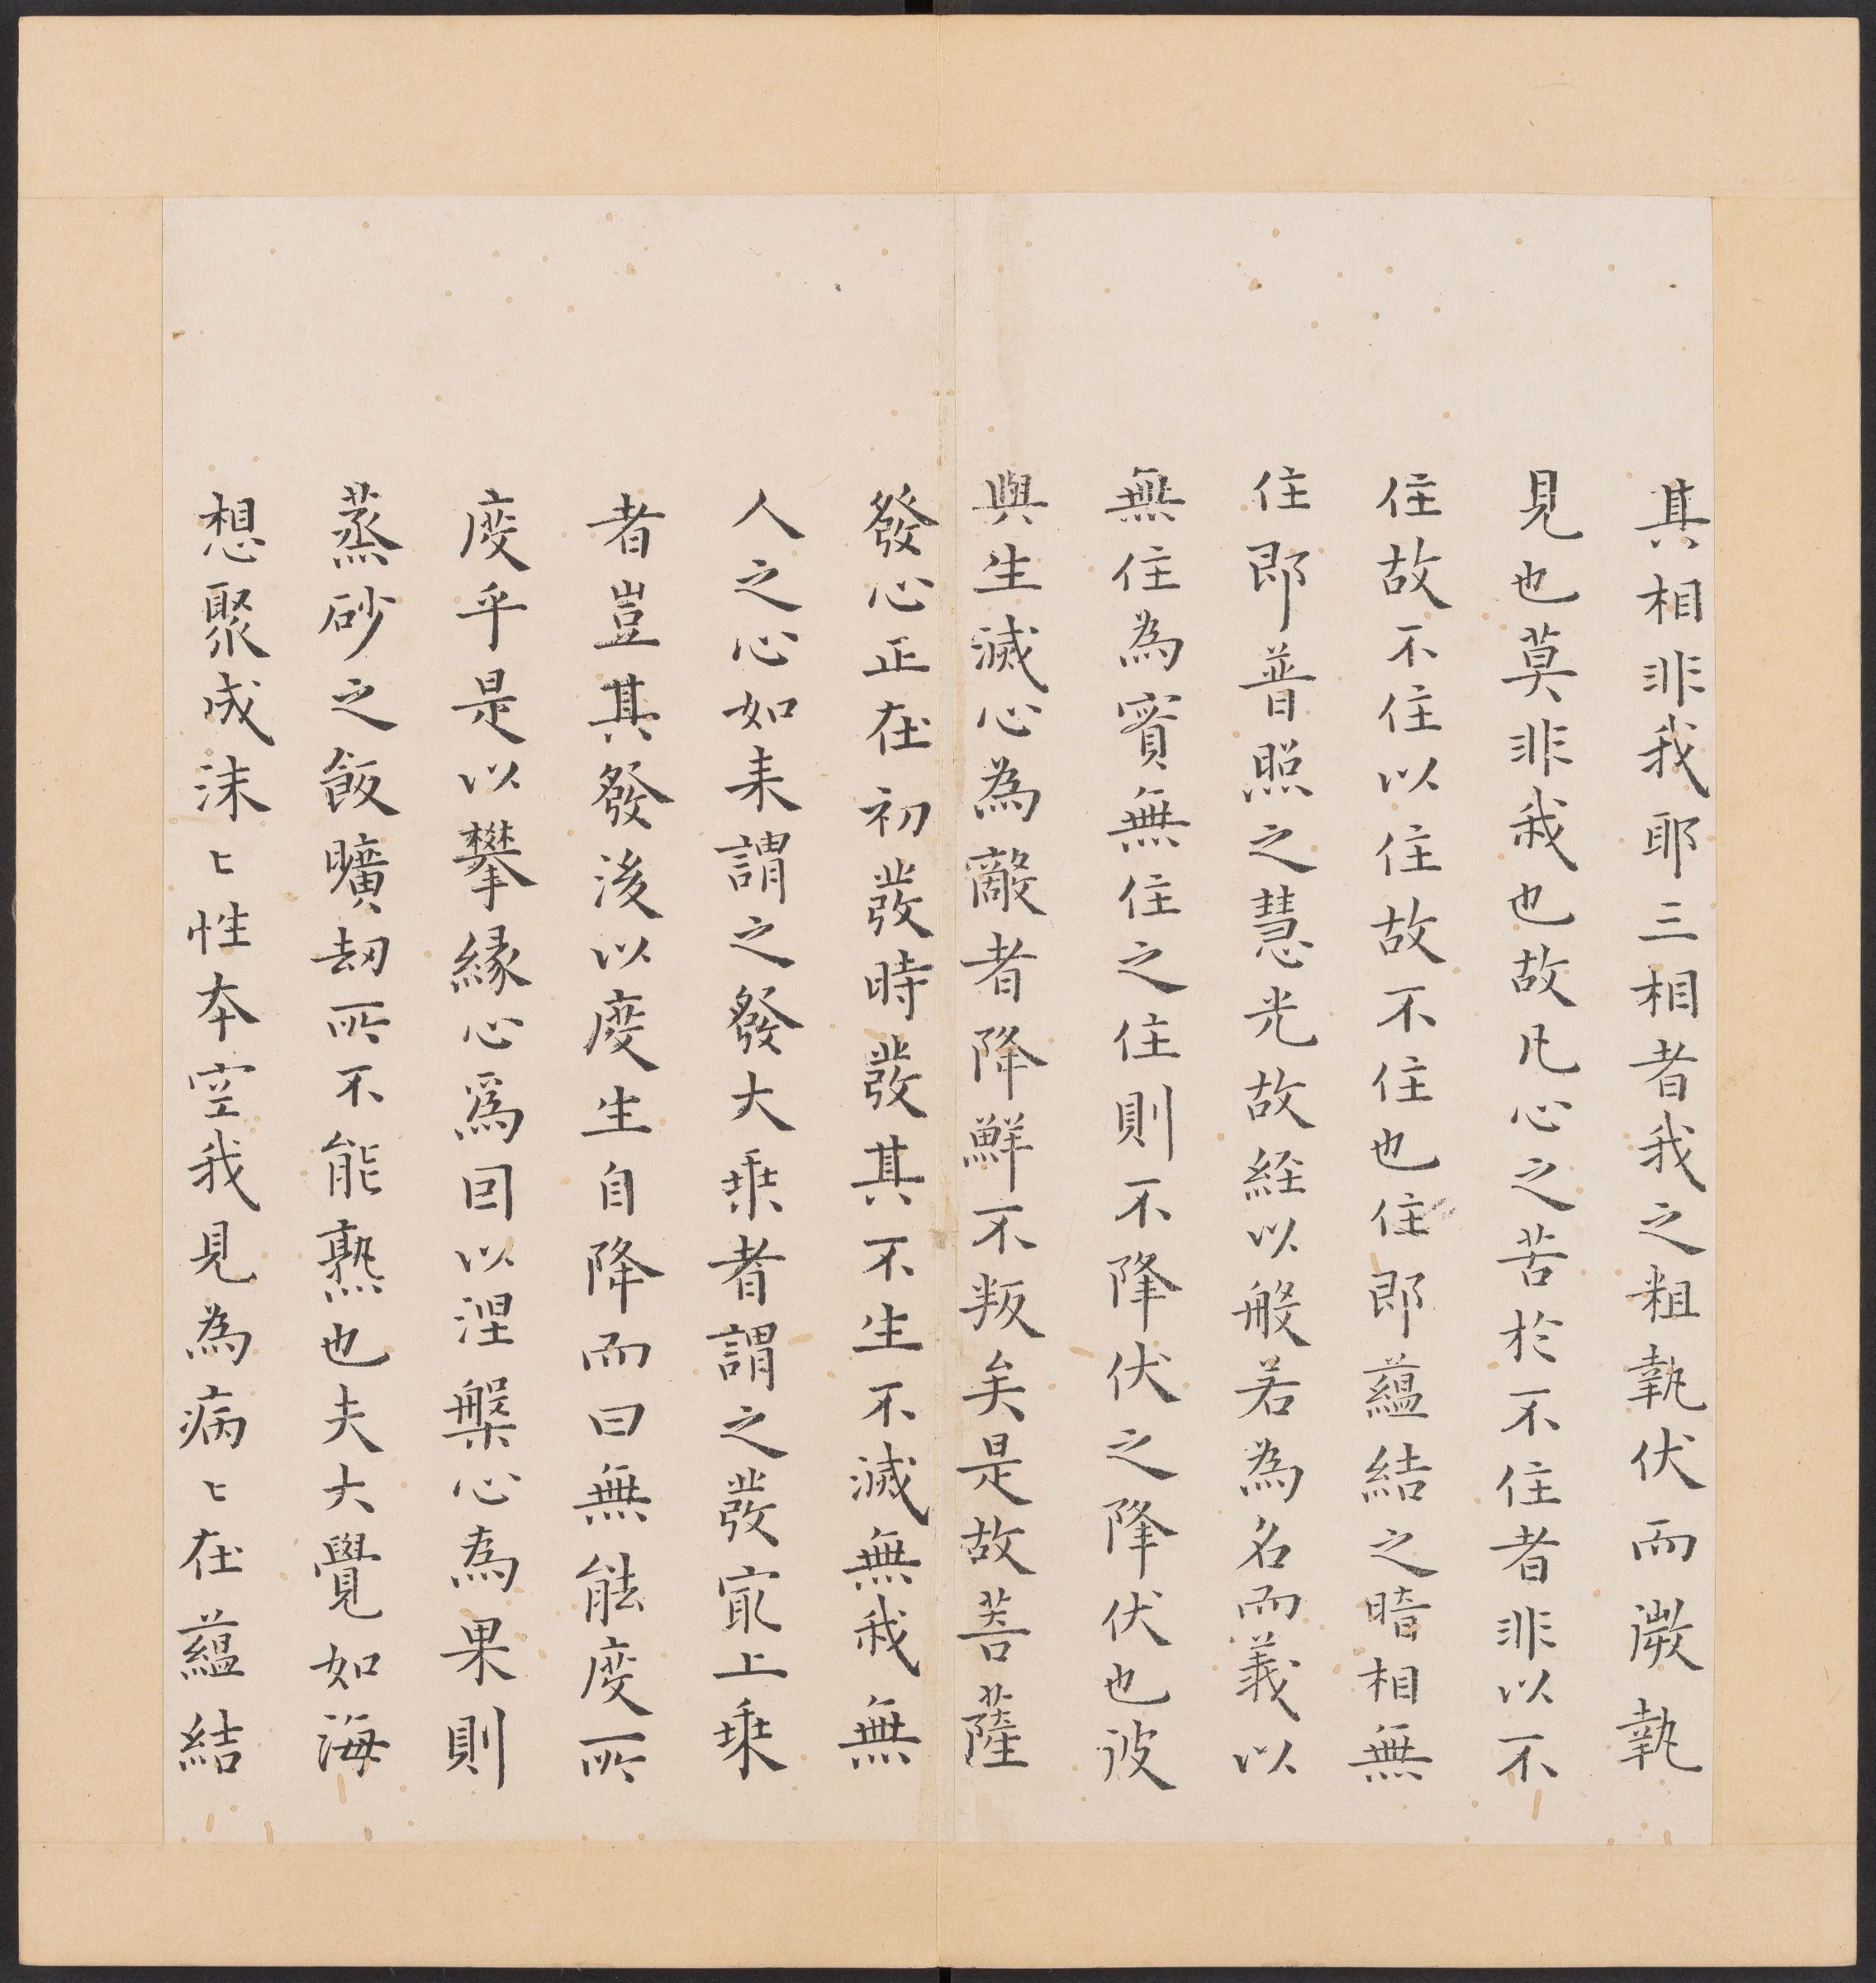 其相非我耶三相者我之粗執伏而微執
見也莫非我也故凡心之苦於不住者非以不
住故不住以住故不住也住即蘊結之暗相無
住即普照之慧光故経以般若為名而義以
無住為賓無住之住則不降伏之降伏也彼
與生滅心為敵者降鮮不叛矣是故菩薩
發心正在初發時發其不生不滅無我無
人之心如来謂之發大乘者謂之發冣上乘
者豈其發後以度生自降而曰無能度所
度乎是以攀緣心爲因以涅槃心為果則
蒸砂之飯曠劫所不能熟也夫大覺如海
想聚成沫〻性本空我見為病〻在蘊結